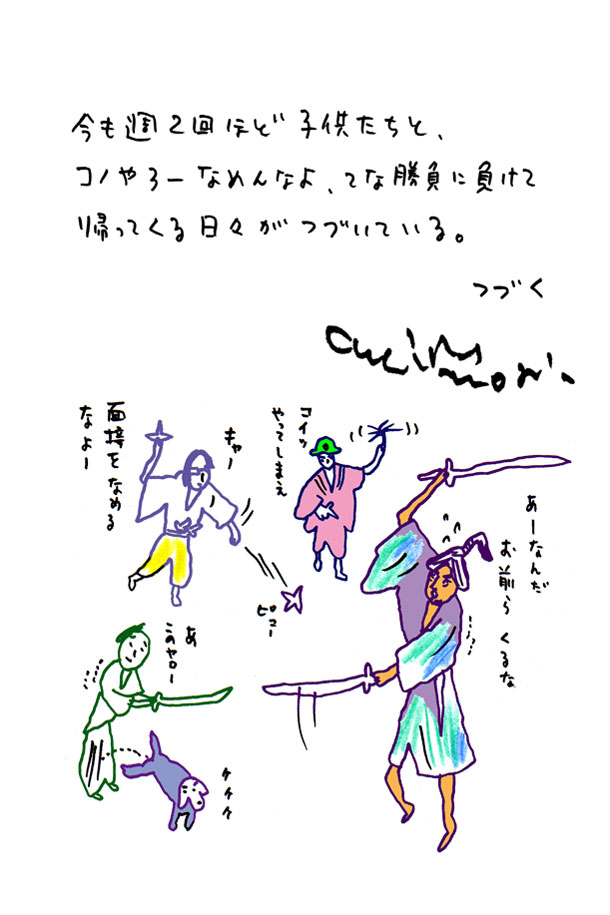 今も週2回ほど子供たちと、
コノやろーなめんなよ、てな勝負に負けて
帰ってくる日々がつづいている。
つづく
面接をなめる
なよー
キャー
コイツ
やってしまえ
あーなんだ
お前ら くるな
ピュー
あ
このヤロー
ケケケ